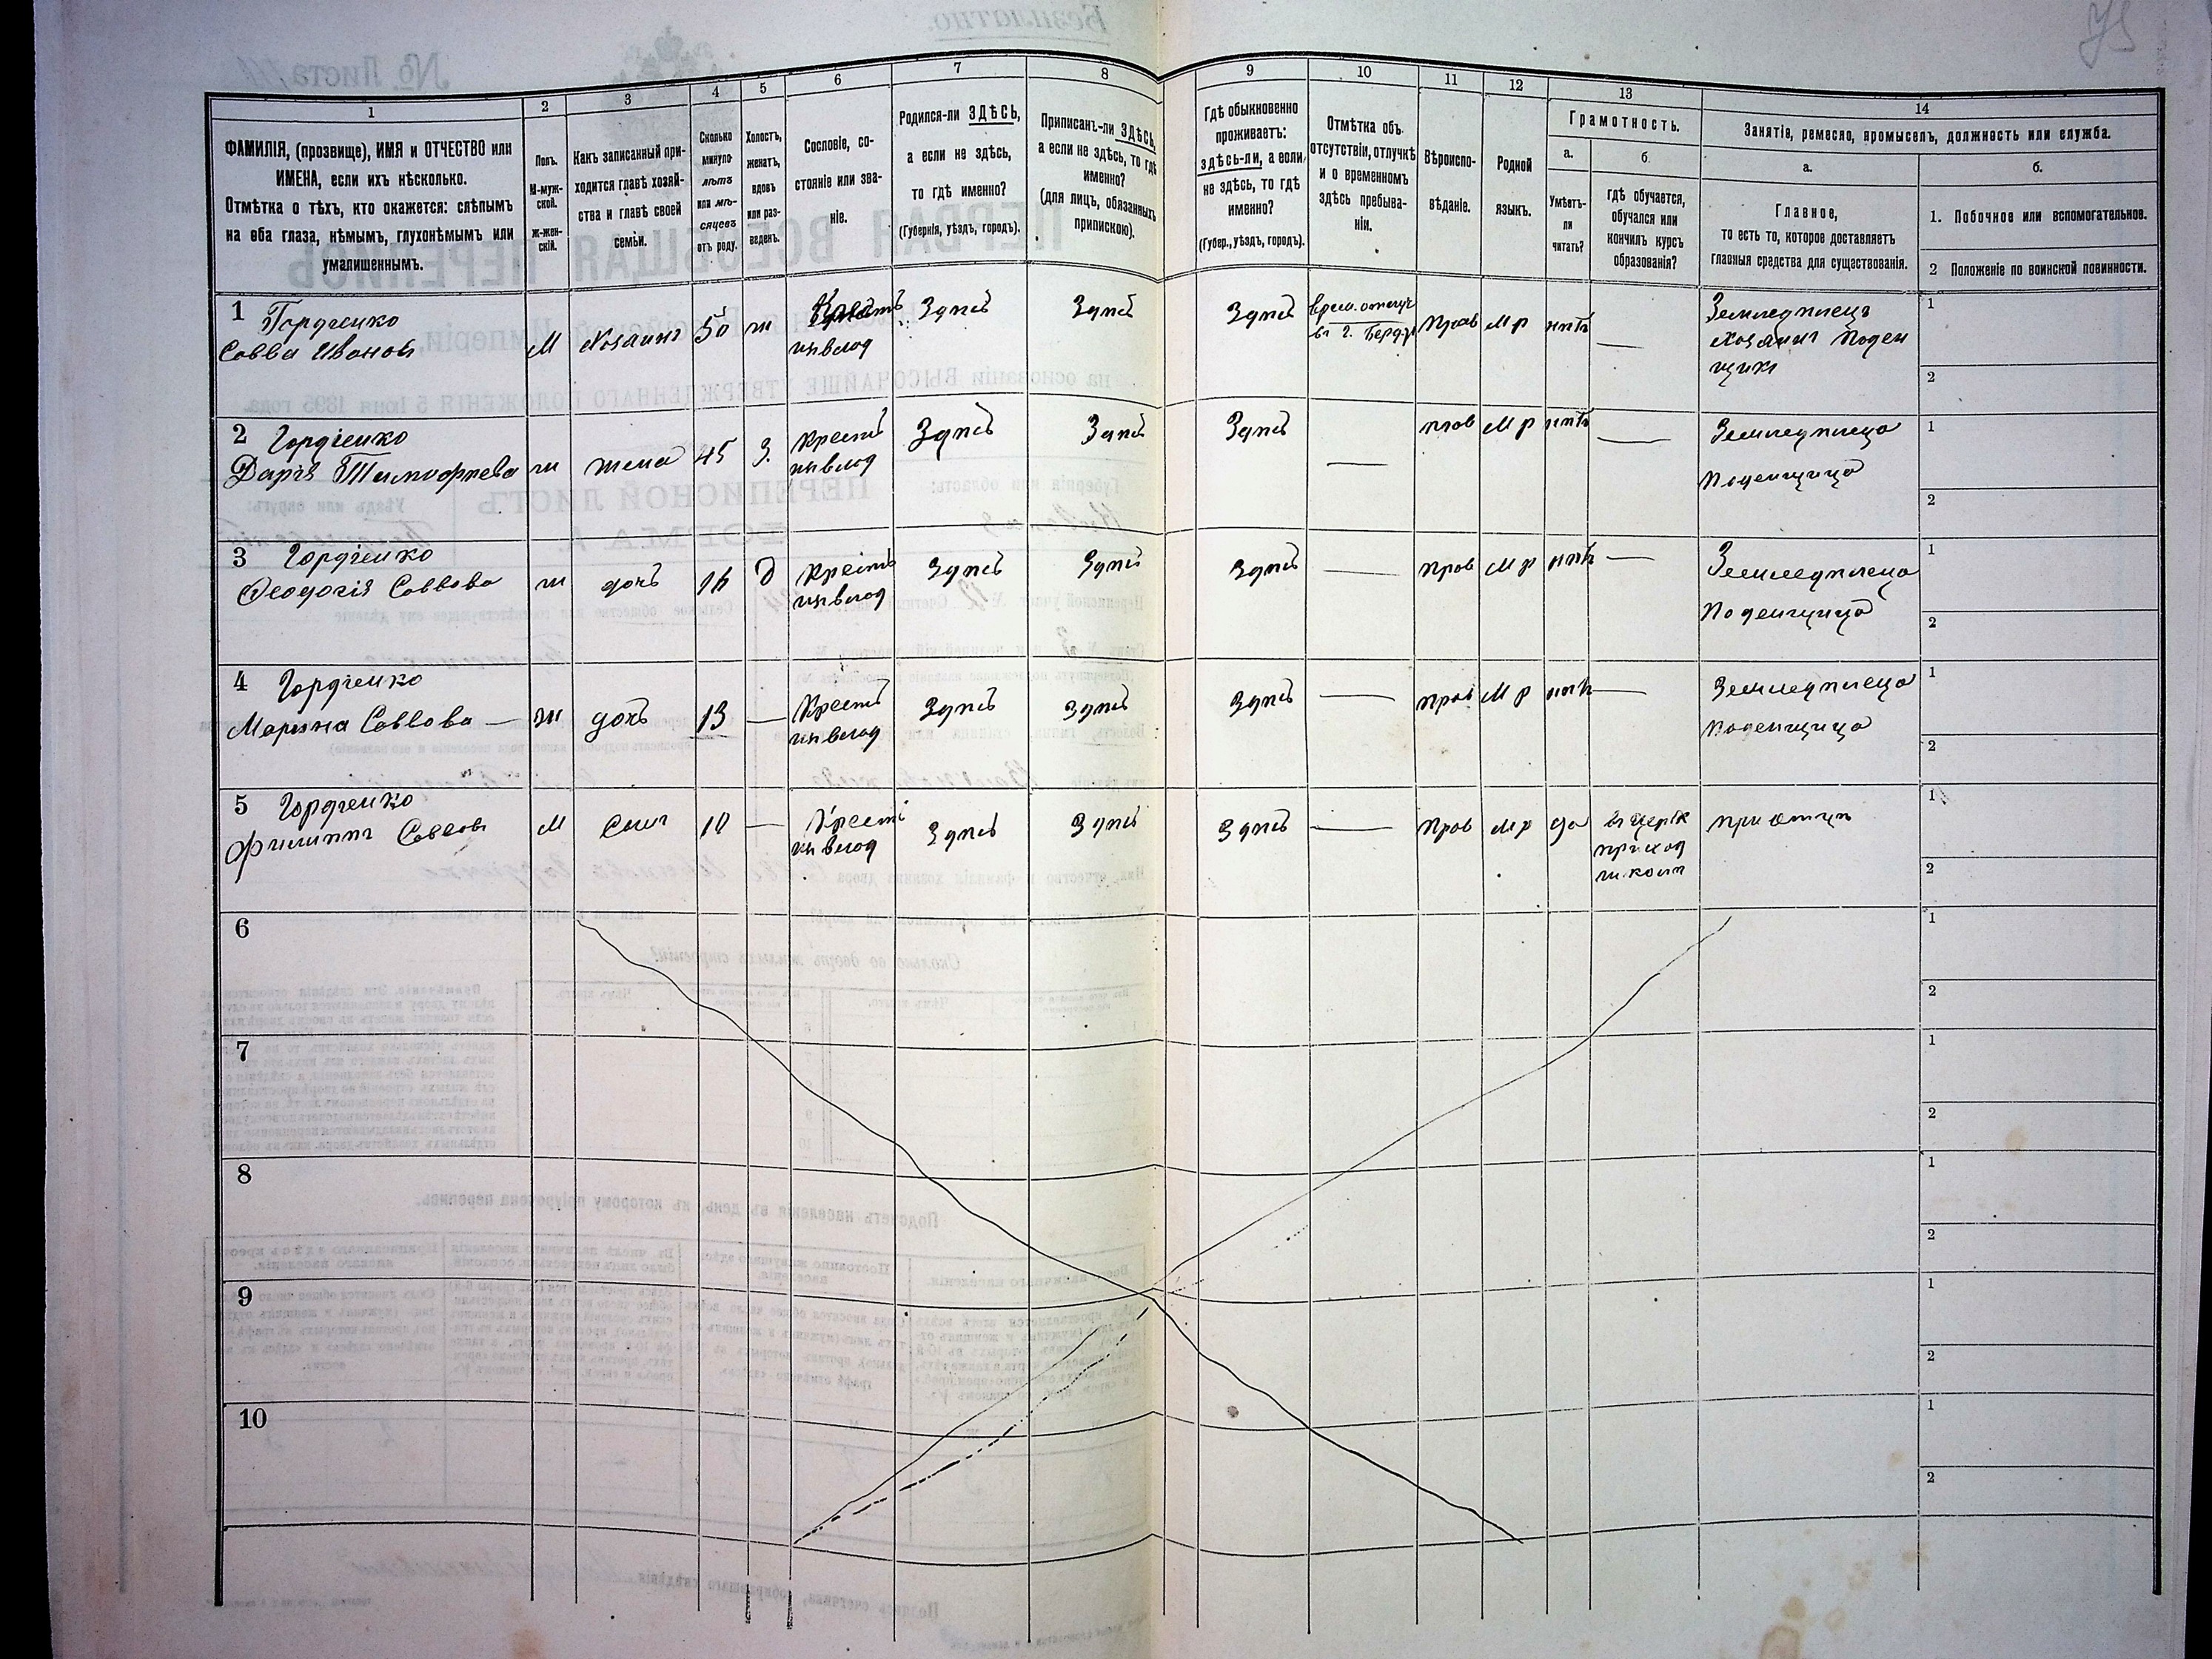 75
1
2
3
4
5
6
7
8
9
10
11
12
13
14
ФАМИЛІЯ, (прозвище), ИМЯ и ОТЧЕСТВО или
ИМЕНА, если ихъ нѣсколько.
Отмѣтка о тѣхъ, кто окажется: слѣпымъ
на оба глаза, нѣмымъ, глухонѣмымъ или
умалишеннымъ.
Полъ.
М-муж-
ской.
Ж-жен-
скій.
Какъ записанный при-
ходится главѣ хозяй-
ства и главѣ своей
семьи.
Сколько
минуло
лѣтъ
или мѣ-
сяцевъ
отъ роду.
Холостъ,
женатъ,
вдовъ
или раз-
веденъ.
Сословіе, со-
стояніе или зва-
ніе.
Родился-ли ЗДѢСЬ,
а если не здѣсь,
то гдѣ именно?
(Губернія, уѣздъ, городъ).
Приписанъ-ли ЗДѢСЬ,
а если не здѣсь, то гдѣ
именно?
(для лицъ, обязанныхъ
припискою).
Гдѣ обыкновенно
проживаетъ:
ЗДѢСЬ-ЛИ, а если
не здѣсь, то гдѣ
именно?
(Губер., уѣздъ, городъ).
Отмѣтка объ
отсутствіи, отлучкѣ
и о временномъ
здѣсь пребыва-
ніи.
Вѣроиспо-
вѣданіе.
Родной
языкъ.
Грамотность.
а.
Умѣетъ-
ли
читать?
б.
гдѣ обучается,
обучался или
кончилъ курсъ
образованія?
Занятіе, ремесло, промыселъ, должность или служба.
а.
Главное,
то есть то, которое доставляетъ
главныя средства для существованія.
б.
1. Побочное или вспомогательное.
2 Положеніе по воинской повинности.
1 Гордіенко
Савва Ивановъ
М
Хозаинъ
50
ж
Крестъ
из влад
Здѣсь
Здѣсь
Здѣсь
врем. отлуч
въ г. Берд
Прав
М р
нѣтъ
—
Земледѣлецъ
Хозяинъ Поден
щикъ
1
2
2 Гордіенко
Дарія Тимофѣева
ж
жена
45
З.
Крестъ
из влад
Здѣсь
Здѣсь
Здѣсь
—
прав
М р
нѣтъ
—
Земледѣлица
Поденщица
1
2
3 Гордіенко
Феодосія Саввова
ж
дочь
16
д
Крестъ
из влад
Здѣсь
Здѣсь
Здѣсь
—
прав
М р
нѣтъ
—
Земледѣлица
Поденщица
1
2
4 Гордіенко
Марина Саввова —
ж
дочь
13
—
Крестъ
из влад
Здѣсь
Здѣсь
Здѣсь
—
прав
М р
нѣтъ
—
Земледѣлица
Поденщица
1
2
5 Гордіенко
Филиппъ Саввовъ
М
Сынъ
10
—
Крестъ
из влад
Здѣсь
Здѣсь
Здѣсь
—
Прав
М р
да
въ церк
приход
школѣ
при отцѣ
1
2
6
1
2
7
1
2
8
1
2
9
1
2
10
1
2